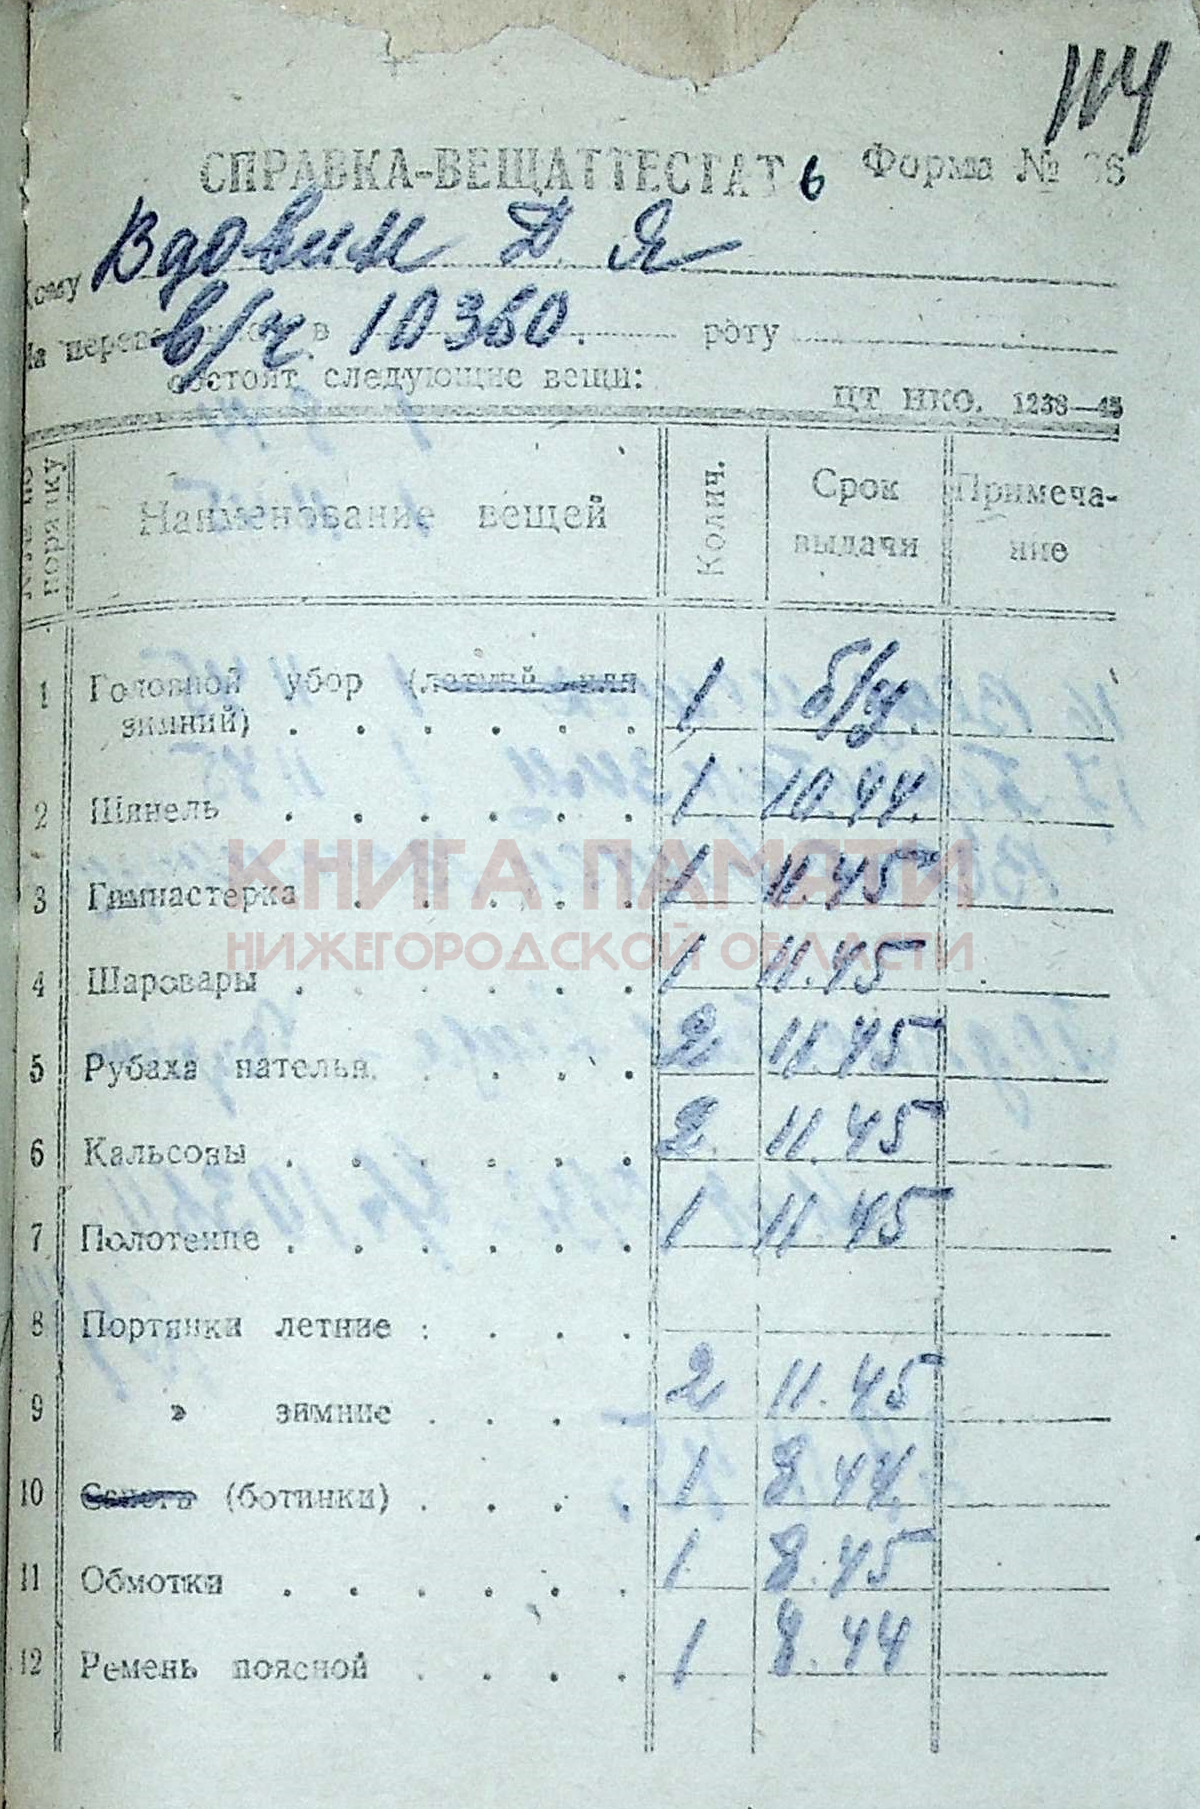 114
СПРАВКА-ВЕЩАТТЕСТАТ 6 Форма №
Кому Вдовин Д Я
в/ч в 10360. роту
состоят следующие вещи:
ЦТ НКО. 1238—45
порядку Наименование вещей Колич. Срок выдачи Примечание
1 Головной убор (летний или зимний) 1 б/у.
2 Шинель 1 10.44.
3 Гимнастерка 1 11.45
4 Шаровары 1 11.45
5 Рубаха нательн. 2 11.45
6 Кальсоны 2 11.45
7 Полотенце 1 11.45
8 Портянки летние
9 » зимние 2 11.45
10 Сапоги (ботинки) 1 8.44
11 Обмотки 1 8.45
12 Ремень поясной 1 8.44
КНИГА ПАМЯТИ
НИЖЕГОРОДСКОЙ ОБЛАСТИ